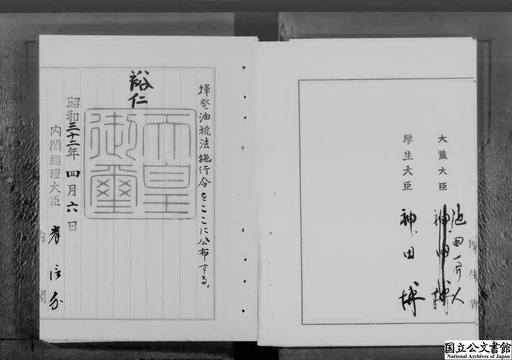 揮発油税法施行令をここに公布する。
裕仁
天皇御璽
昭和三十二年四月六日
内閣総理大臣 岸信介
大蔵大臣 池田勇人
厚生大臣 神田博
国立公文書館
National Archives of Japan